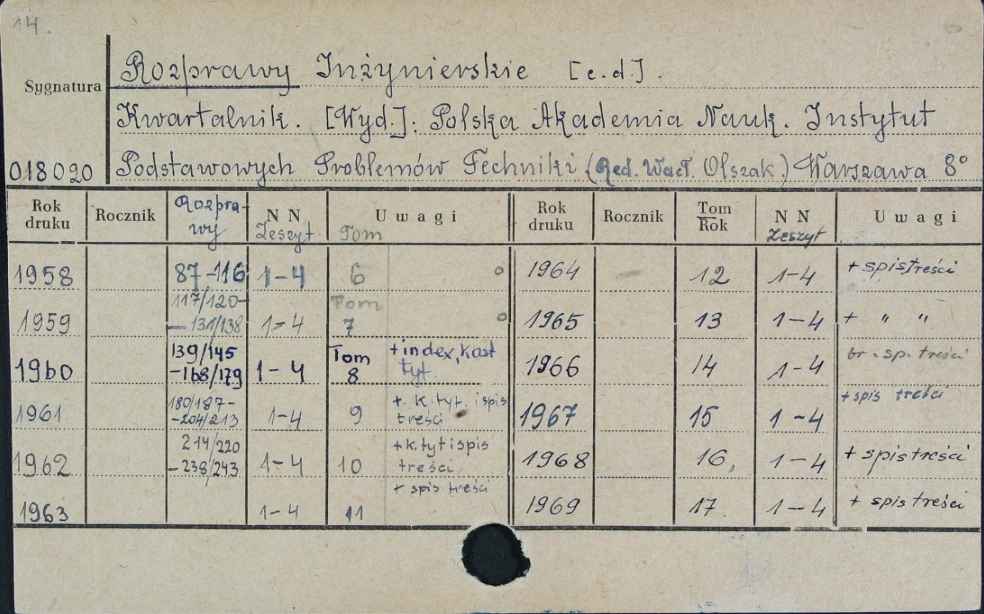 14.
Rozprawy Inżynierskie [c.d].
Sygnatura
Kwartalnik. [Wyd.]: Polska Akademia Nauk. Instytut
018020 Podstawowych Problemów Techniki (Red. Wacł. Olszak.) Warszawa 8°
Rok druku Rocznik Rozprawy N N Zeszyt Uwagi Tom Rok druku Rocznik Tom Rok N N Zeszyt Uwagi
1958 87-116 1-4 6 o 1964 — 12 1-4 + spis treści
1959 117/120- — 131/138 1-4 Tom 7 o 1965 13 1-4 + " "
1960 139/145 -168/179 1-4 Tom 8 + index, kast tyt. 1966 14 1-4 br. sp. treści
1961 180/187- -204/213 1-4 9 + k. tyt. i spis treści 1967 15 1-4 + spis treści
1962 214/220 -238/243 1-4 10 + k. tyt i spis treści 1968 16, 1-4 + spis treści
1963 1-4 11 + spis treści 1969 17. 1-4 + spis treści